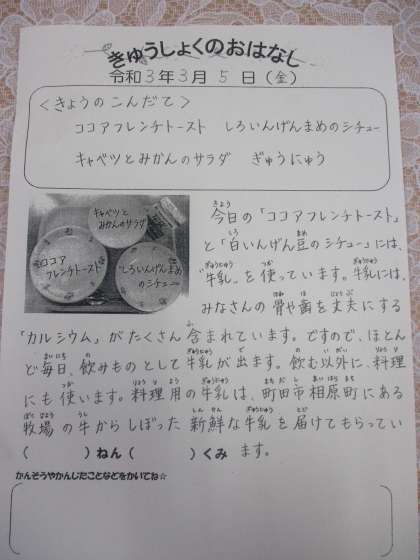 きゅうしょくのおはなし
令和3年3月5日(金)
<きょうのこんだて>
ココアフレンチトースト しろいんげんまめのシチュー
キャベツとみかんのサラダ ぎゅうにゅう
キャベツと
みかんのサラダ
ココア
フレンチトースト
しろいんげんまめ
のシチュー
今日の「ココアフレンチトースト」
と「白いんげん豆のシチュー」には、
"牛乳"を使っています。牛乳には、
みなさんの骨や歯を丈夫にする
「カルシウム」がたくさん含まれています。ですので、ほとん
ど毎日、飲みものとして牛乳が出ます。飲む以外に、料理
にも使います。料理用の牛乳は、町田市相原町にある
牧場の牛からしぼった新鮮な牛乳を届けてもらってい
ます。
( )ねん( )くみ
かんそうやかんじたことなどをかいてね☆